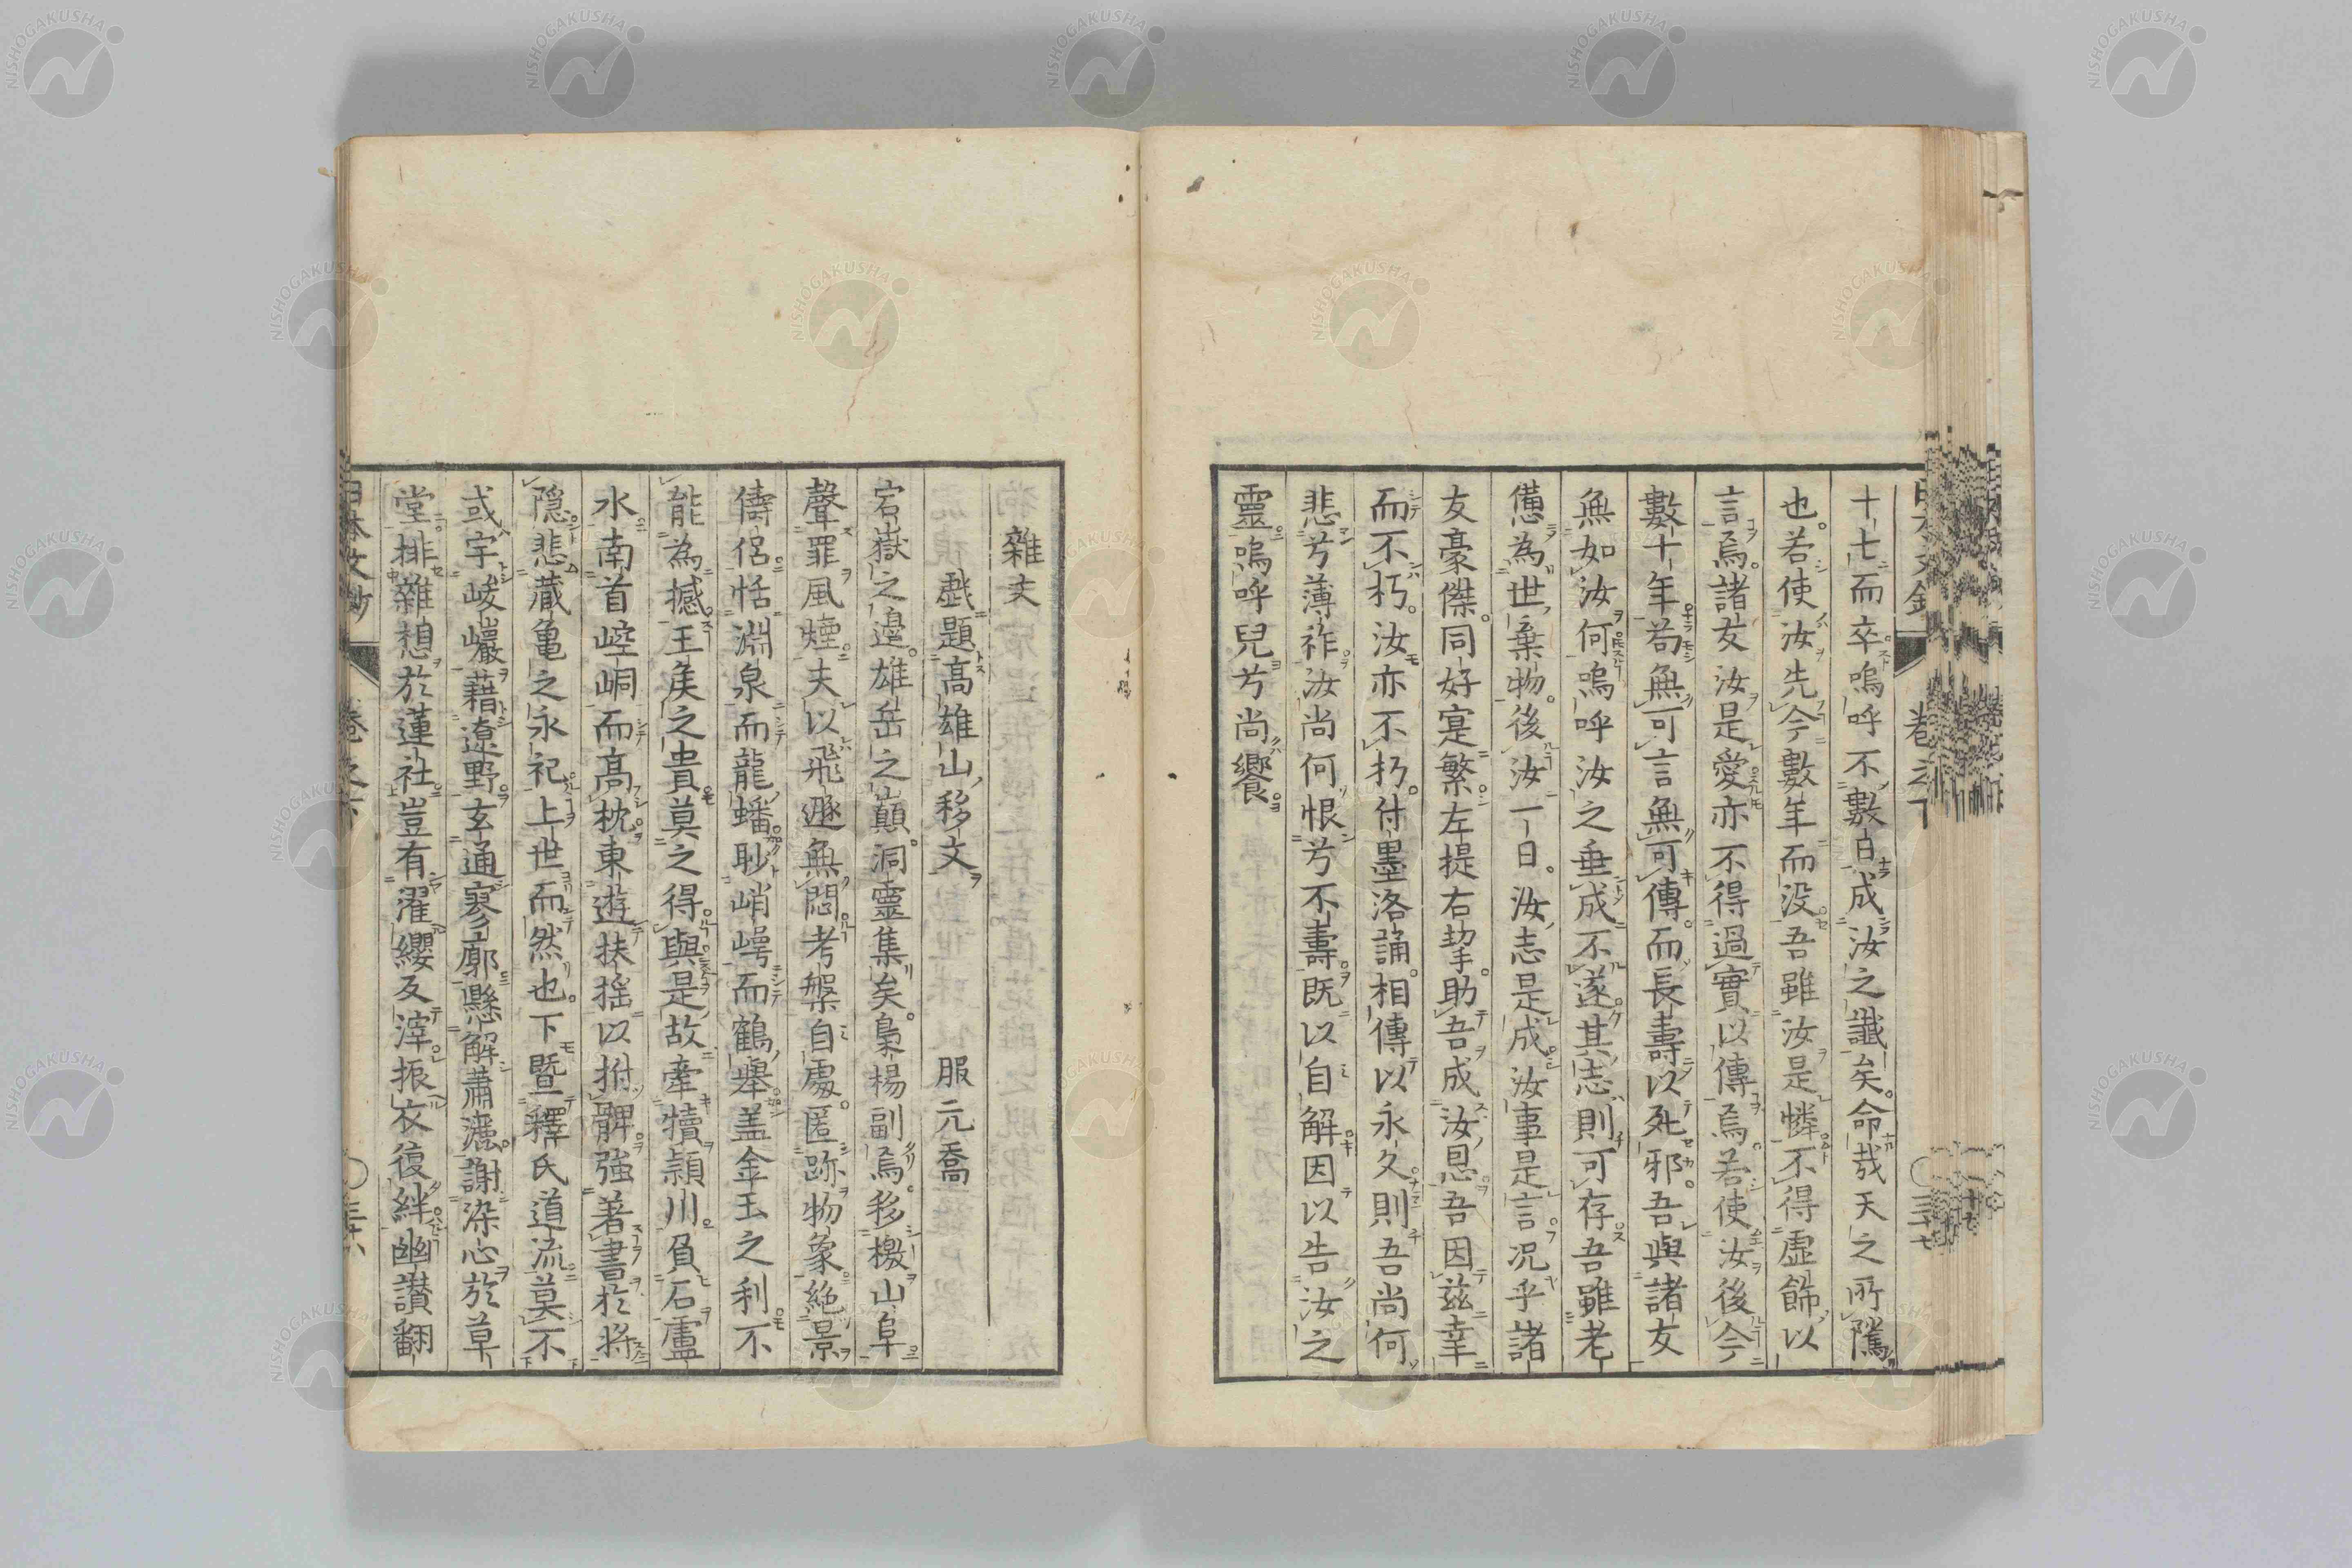 十七而卒嗚呼不數日成汝之讖矣命哉天之所隲
也若使汝先今數年而没吾雖汝是憐不得虚飾以
言焉諸友汝是愛亦不得過實以傳焉若使汝後今
數十年苟無可言無可傳而長壽以死邪吾與諸友
無如汝何嗚呼汝之垂成不遂其志則可存吾雖老
憊為世棄物後汝一日汝志是成汝事是言况乎諸
友豪傑同好寔繁左提右挈助吾成汝息吾因茲幸
而不朽汝亦不朽付墨洛誦相傳以永久則吾尚何
悲兮薄祚汝尚何恨兮不壽既以自解因以告汝之
靈嗚呼兒兮尚饗
雜文
戯題高雄山移文 服元喬
宕嶽之邉雄岳之巔洞靈集矣梟楊副焉移檄山阜
聲罪風煙夫以飛遯無悶考槃自處匿跡物象絶景
儔侣恬淵泉而龍蟠眇峭崿而鶴舉盖金玉之利不
能為撼王侯之貴莫之得與是故牽犢潁川負石盧
水南首崆峒而高枕東遊扶揺以拊髀強著書於將
隠悲藏亀之永祀上世而然也下曁釋氏道流莫不
或宇峻巘藉遼野玄通寥廓懸解蕭灑謝染心於草
堂排雜想於蓮社豈有濯纓反滓振衣復絆幽讃翻
日本文鈔 卷之下 三十八
卷之下 三十七